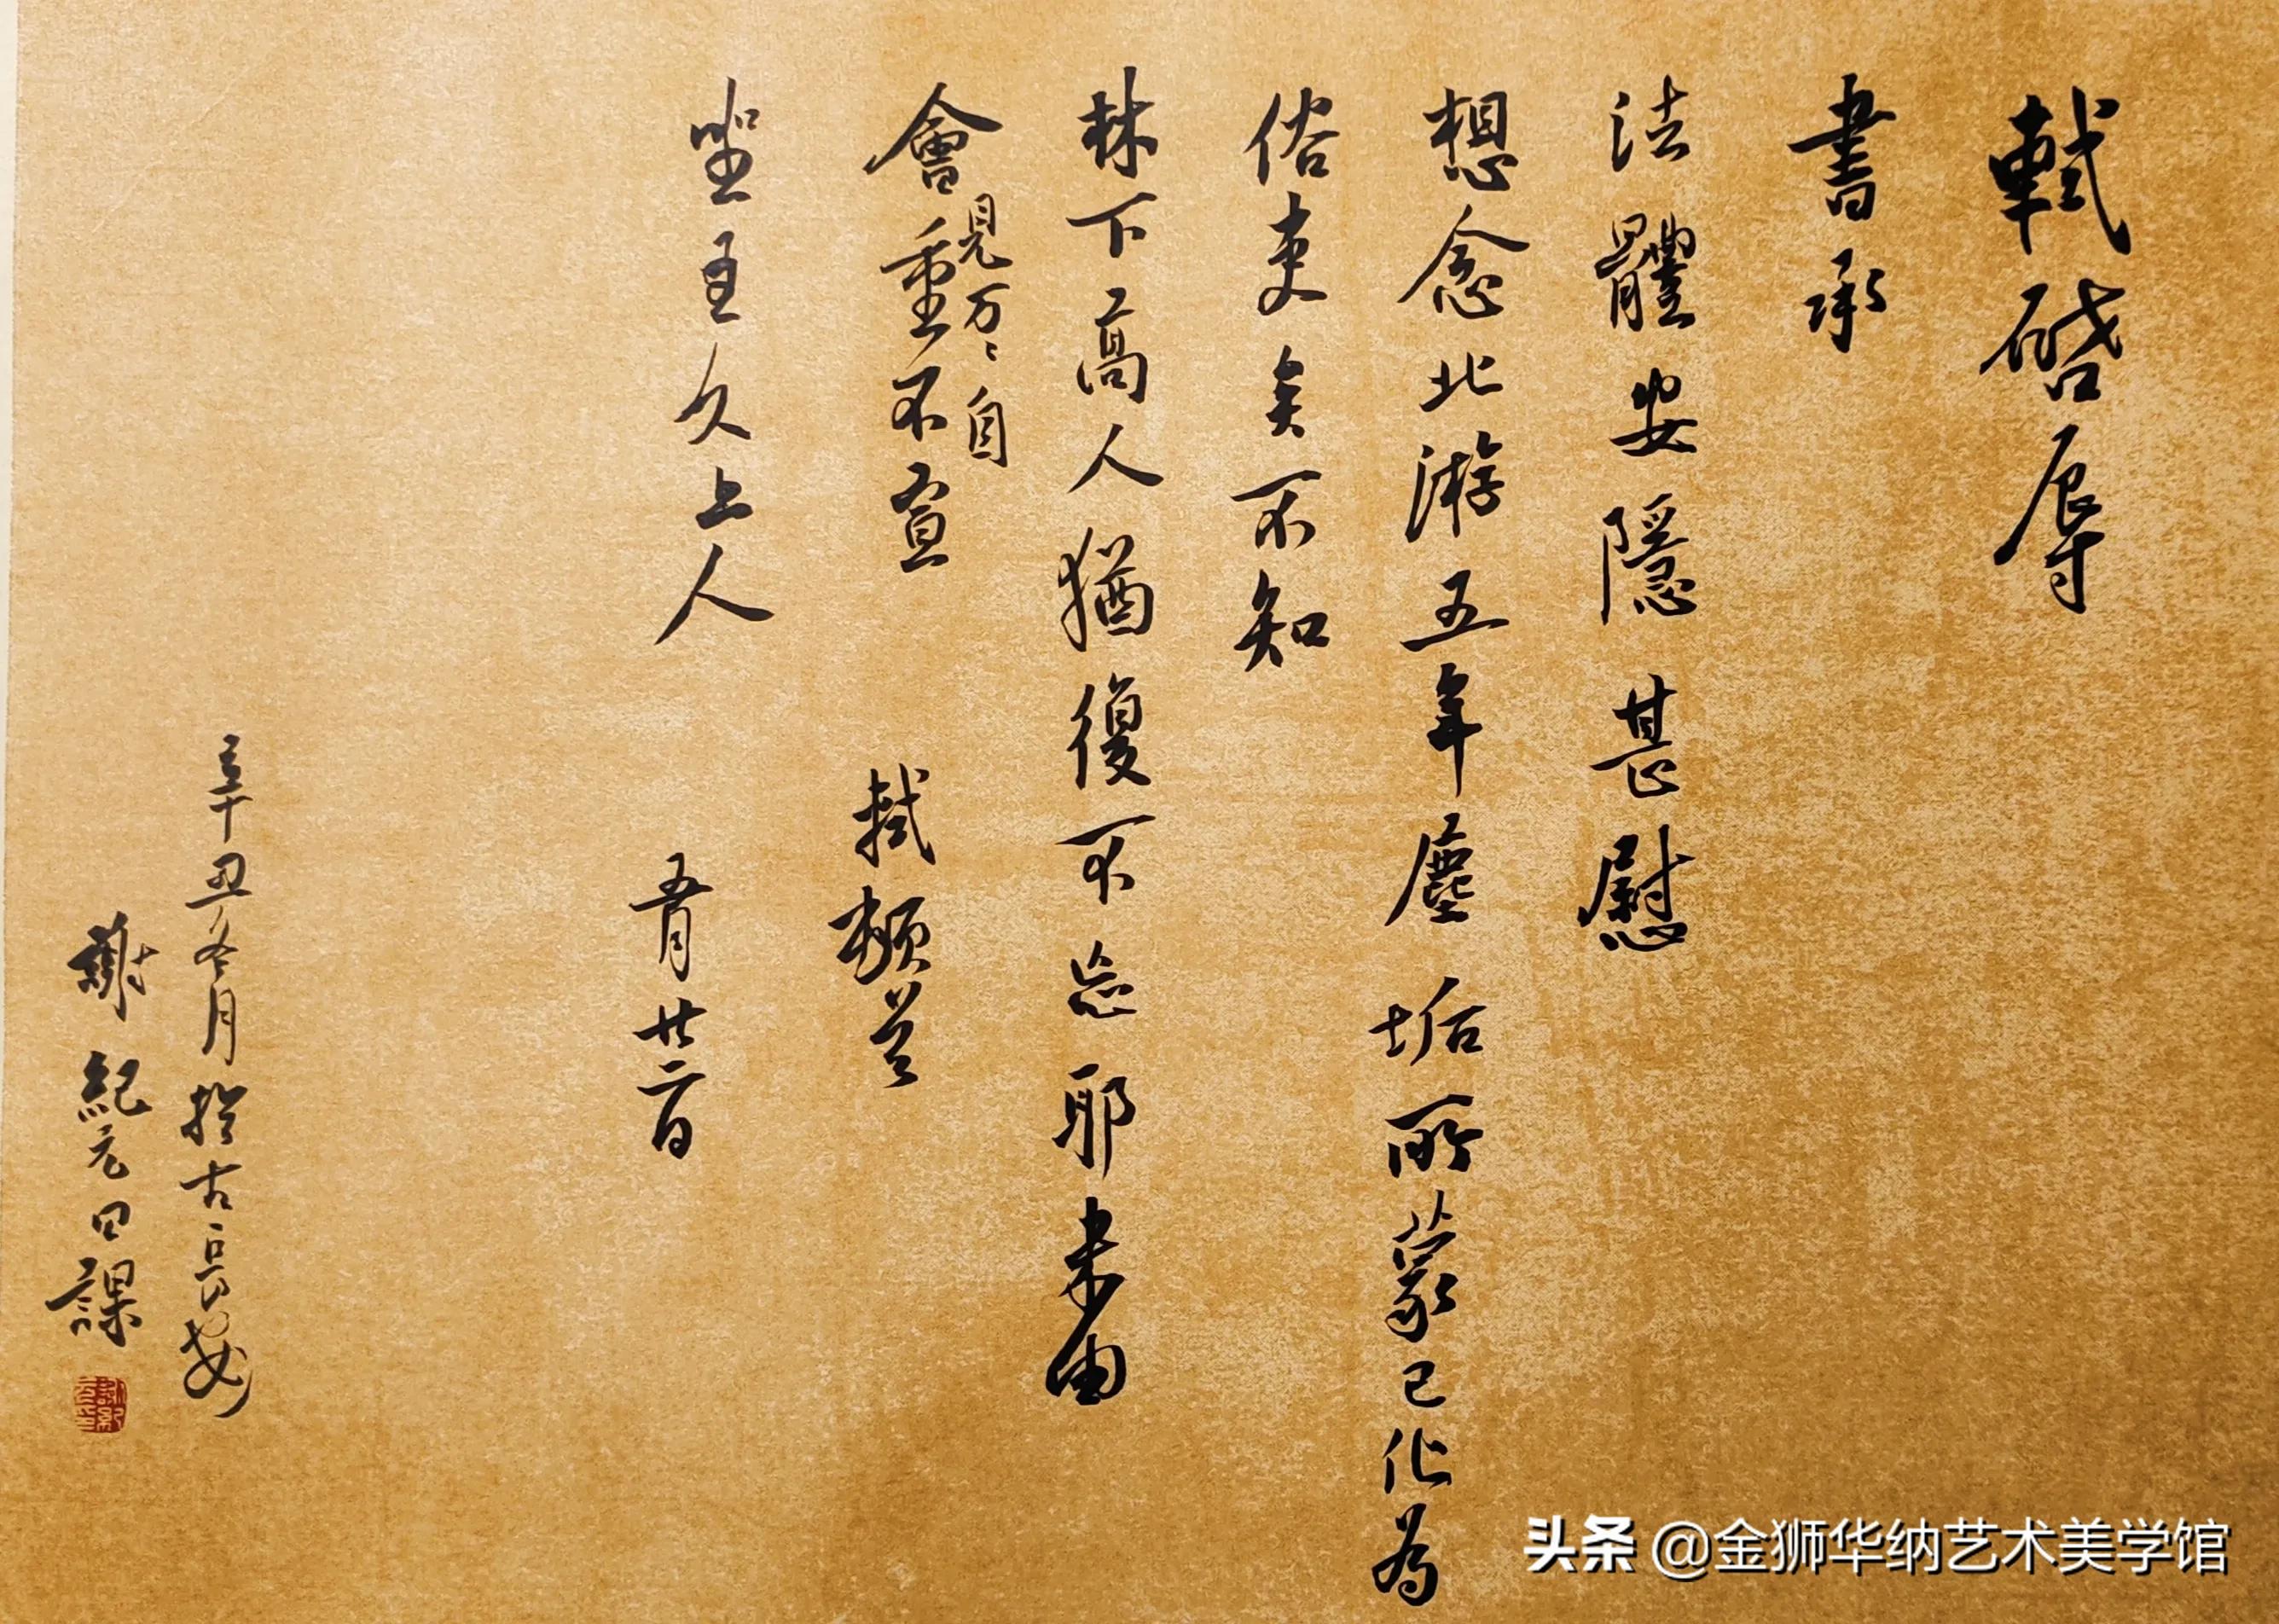 軾啓辱
書承
法體安隱甚慰
想念北游五年塵垢所蒙已化為
俗吏矣不知
林下高人猶復不忘耶未由
會見万〻自
重不宣　軾頓首
坐主久上人　五月廿二日
辛丑冬月於古長安
謝紀元日課
头条 @金狮华纳艺术美学馆